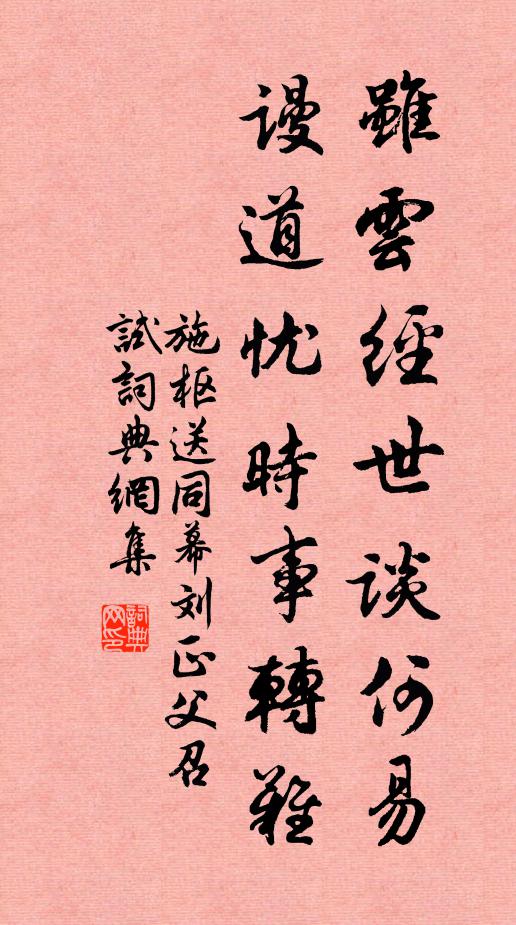 雖雲經世談何易
谩道忧時事轉難
施枢送同幕刘正父召
試詞典網集
詞典
网印